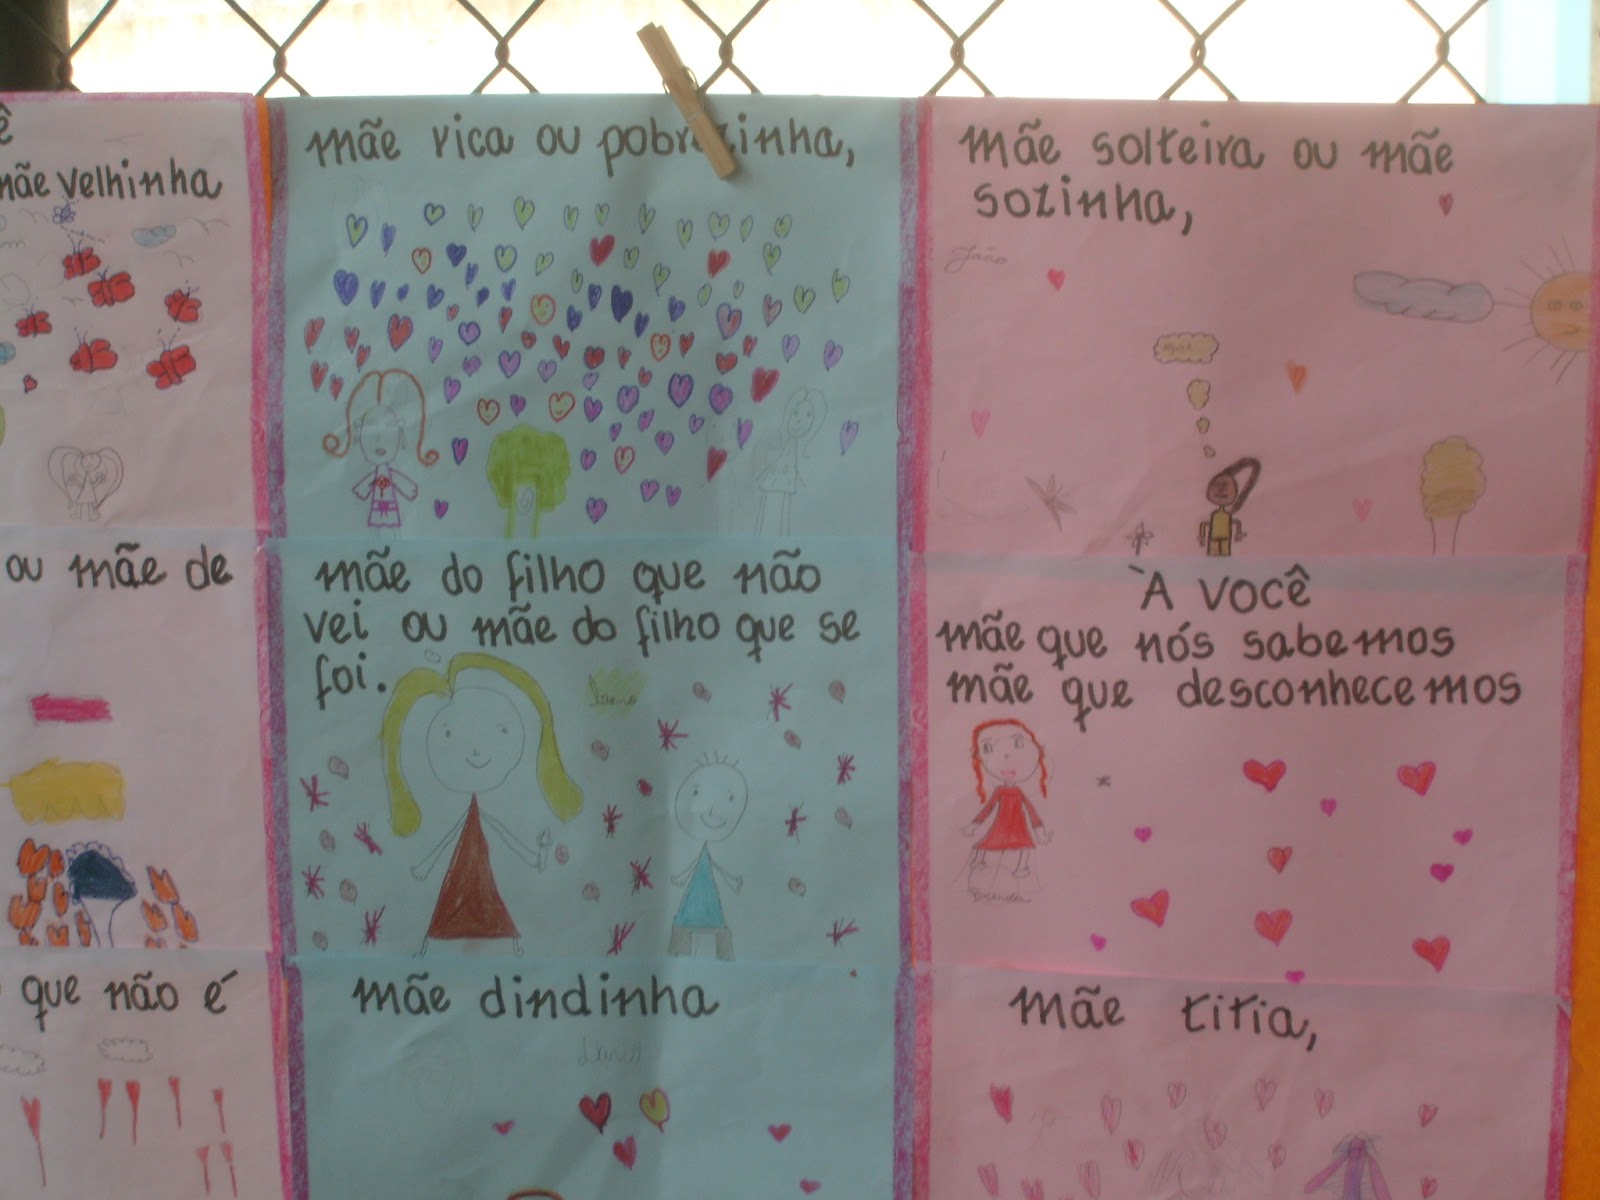 ê
mãe velhinha
mãe rica ou pobrezinha,
mãe solteira ou mãe
sozinha,
João
mãe
ou mãe de
mãe do filho que não
vei ou mãe do filho que se
foi.
À VOCÊ
mãe que nós sabemos
mãe que desconhecemos
Brenda
que não é
mãe dindinha
mãe titia,